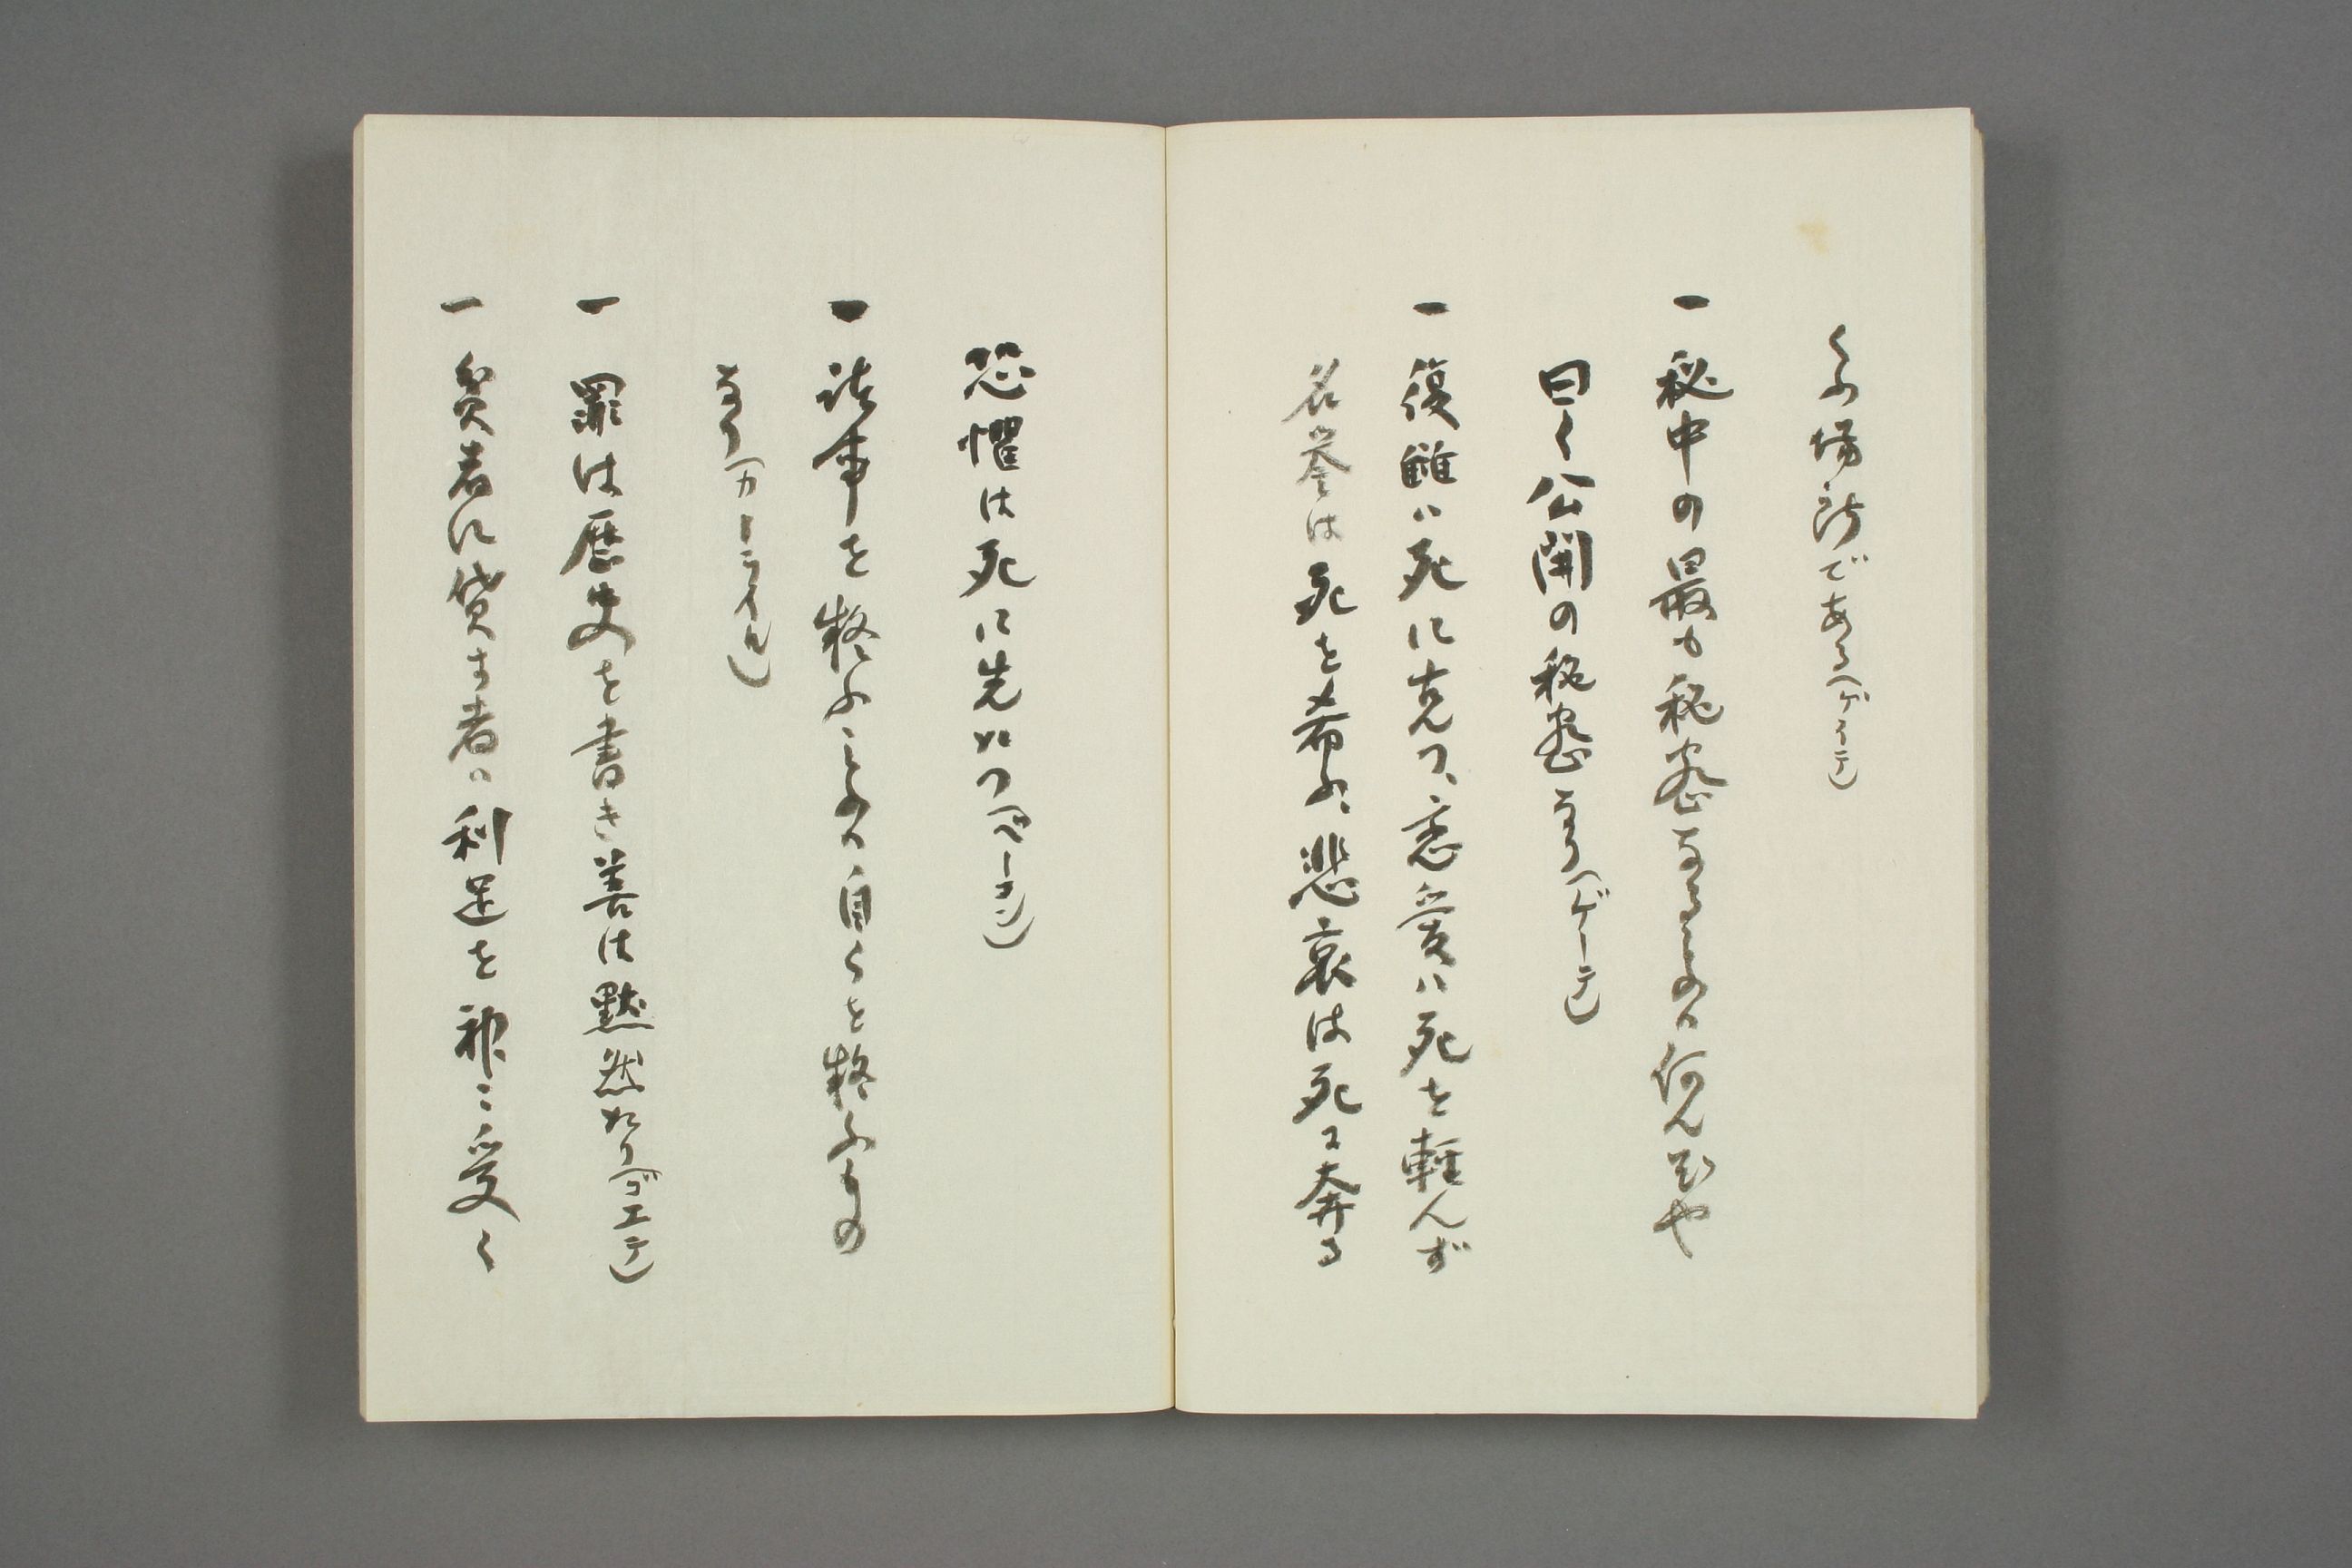 くふ場所である(ゲーテ)
一 秘中の最も秘密なるものは何んぞや
曰く公開の秘密なり(ゲーテ)
一 復讐ハ死に克つ、恋愛ハ死を軽んず
名誉は死を希ふ、悲哀は死に奔る
恐懼は死に先たつ(ベーコン)
一 諸事を整ふものは自らを整ふもの
なり(カーライル)
一 罪は歴史を書き善は黙然たり(ゴエテ)
一 貧者に貸す者は利足を神に受く